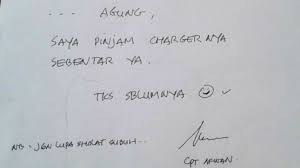 --- AGUNG,
SAYA PINJAM CHARGERNYA
SEBENTAR YA.
TKS SBLUMNYA ☺✓
NB - JGN LUPA SHOLAT SUBUH...
CPT AFWAN